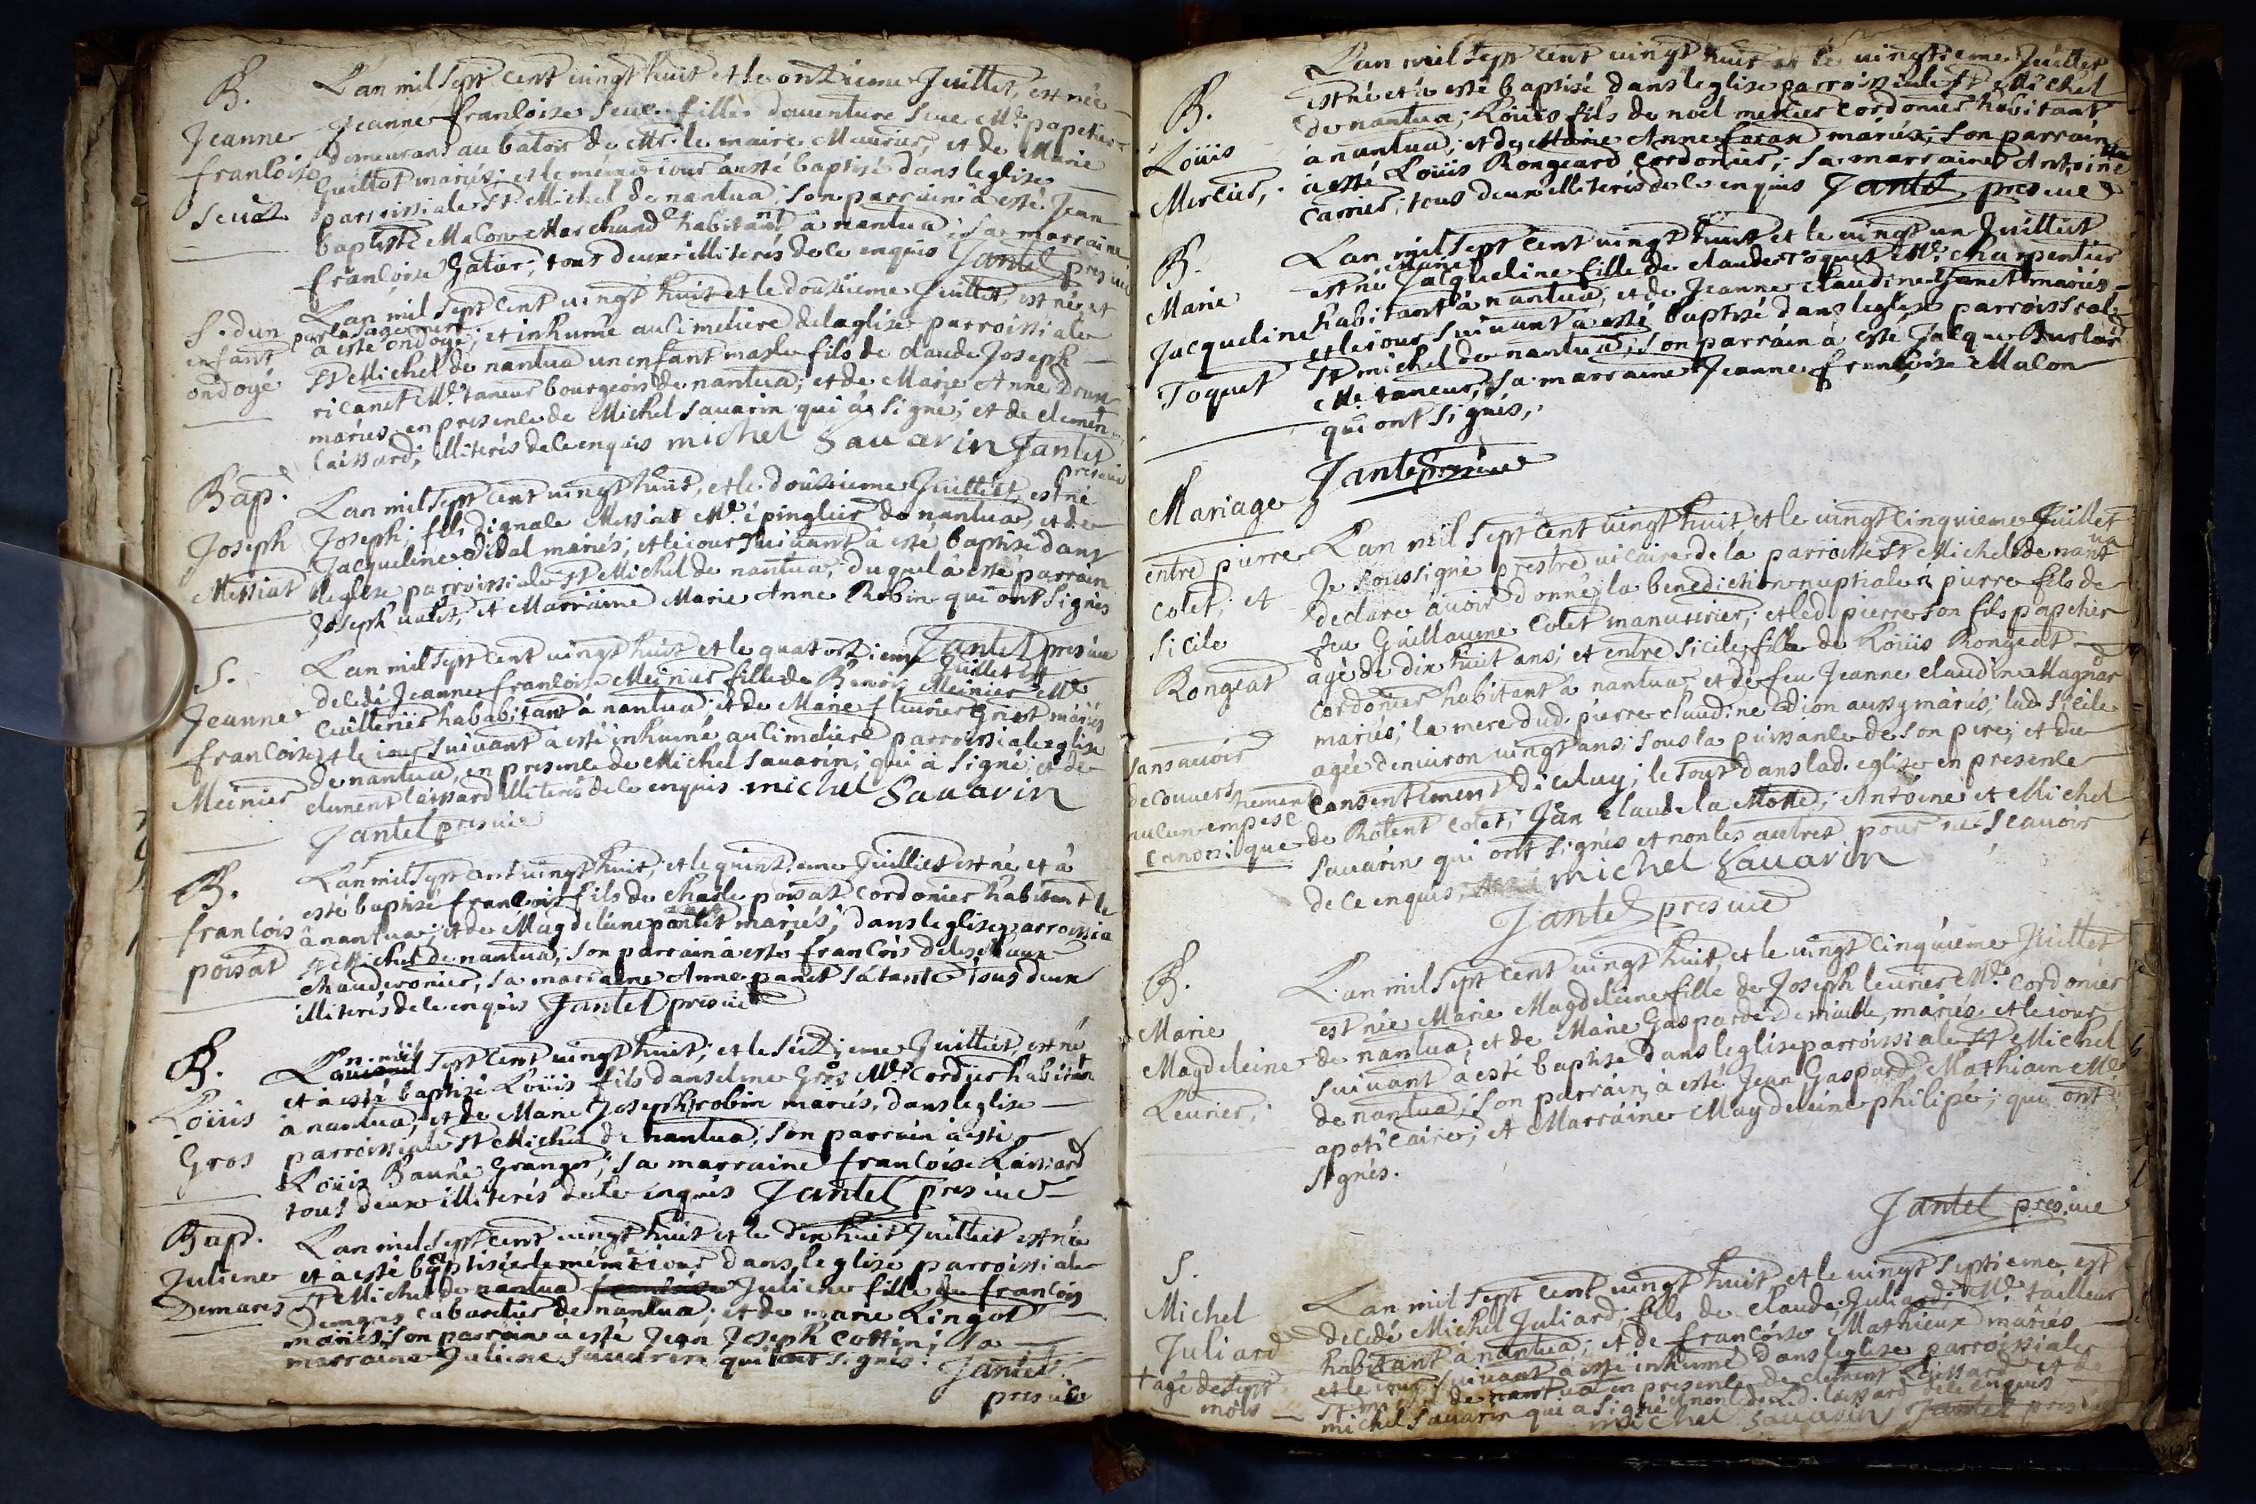 B.
Jeanne
francoise
Seue
Lan mil sept cent vingt huit et le onzieme Juillet, est née
Jeanne francoise Seue fille daventure Seue Me. papetier
demeurant au batoir de Mr. le maire Maurier, et de Marie
Guillot mariés; et le même jour à esté baptisé dans leglise
parroissiale St Michel de nantua; son parrain à esté Jean
baptiste Macon Marchand habitant à nantua; sa marraine
francoise Gatier, tous deux illiterés de ce enquis Jantet
pres vic
S. dun
enfant
ondoyé
Lan mil sept cent vingt huit et le douzieme Juillet, est né et
par la sagement
à esté ondoyé; et inhumé au cimetiere de laglise parroissiale
St Michel de nantua un enfant masle fils de claude Joseph
ricanet Me. taneur bourgeois de nantua; et de Marie Anne Drun
mariés en presence de Michel Sauarin qui à signé; et de clement
laissard; illiterés de ce enquis michel Sauarin Jantet
pres vic
Bap.
Joseph
Messiat
Lan mil sept cent vingt huit, et le douzieme Juilliet est né
Joseph, fils dignale Messiat Me. épinglier de nantua, et de
Jacqueline didal mariés; et le jour suivant à esté baptisé dans
leglise parroissiale St Michel de nantua, duquel à esté parrain
Joseph ualet, et Marraine Marie Anne Robin qui ont signés
Jantet pres vic
S.
Jeanne
francoise
Meinier
Lan mil sept cent vingt huit et le quatorzieme Juillet est
decedé Jeanne francoise Meinier fille de Benoit Meinier Me.
Cuillerier hababitant à nantua; et de Marie fleurier Griot mariés
et le jour suivant à esté inhumé au cimetiere parroissiale eglise
de nantua, en presence de Michel Sauarin, qui à signé; et de
clement laissard illiterés de ce enquis michel Sauarin
Jantet pres vic
B.
francois
poisat
Lan mil sept cent vingt huit, et le quinzieme Juilliet est né et à
esté baptisé francois fils de charle poisat cordonier habitant
à nantua; et de Magdeleine pantet mariés; dans leglise parroissiale
St Michel de nantua, son parrain à esté francois
chauderonier, sa marraine Anne panet sa tante tous deux
illiterés de ce enquis Jantet pres vic
B.
Loüis
Gros
Lan mil sept cent vingt huit, et le seizieme Juilliet, est né
et à esté baptisé Loüis fils danselme Gros Me. Cordier habitant
à nantua, et de Marie Joseph robin mariés, dans leglise
parroissiale St Michel de nantua, son parrain à esté
Loüis Granger; sa marraine francoise Laissard
tous deux illiterés de ce inquis Jantet pres vic
Bap.
Juliene
Demares
Lan mil sept cent vingt huit et le dix huit Juilliet est née
et à esté baptisée le même jour dans leglise parroissiale
St Michel de nantua Juliene fille de francois
Demares cabaretier de nantua; et de marie Lingot
mariés; son parrain à esté Jean Joseph cottin; sa
marraine Juliene Sauarin qui ont signés.
Jantet
pres vic
B.
Loüis
Mercier,
Lan mil sept cent vingt huit et le vingtieme Juillet
est né et à esté baptisé dans leglise parroissiale St Michel
de nantua; Loüis fils de noël mercier cordonier habitant
à nantua; et de Marie Anne foran mariés; son parrain
à esté Loüis Rongeard cordonier; sa marraine Antoine
Carrier; tous deux illiterés de ce enquis Jantet pres vic
B.
Marie
Jacqueline
Toquet
Lan mil sept cent vingt huit et le vingt un Juilliet
Marie
est née Jacqueline fille de claude toquet Me. charpentier
habitant à nantua; et de Jeanne claudine Janet mariés
et le jour suivant à esté baptisé dans leglise parroissiale
St michel de nantua; son parrain à esté Jacque Burlar
Me taneur, sa marraine Jeanne francoise Macon
qui ont signés,
Jantet pres vic
Mariage
entre pierre
Colet; et
Sicile
Rongeat
sans auoir
decouvers
nucun empesc hement
canonique
Lan mil sept cent vingt huit, et le vingt cinquieme Juillet
Je soussigné prestre uicaire de la parroisse St Michel de nantua
declare avoir donné la benediction nuptiale à pierre fils de
feu Guillaume Colet manuurier; et led. pierre son fils papetier
agé de dix huit ans; et entre Sicile fille de Loüis Rongeat
cordonier habitant à nantua et de feu Jeanne claudine Magnar
mariés; la mere dud. pierre claudine Dion aussy mariés; lad Sicile
agée denuiron vingt ans; sous la puissance de son pere; et du
consentement diceluy; le tout dans lad. eglise en presence
de Rolent Colet; Jan claude la Motte; Antoine et Michel
Sauarin qui ont signés et non les autres pour ne scauoir
de ce enquis; michel Sauarin
Jantet pres vic
B.
Marie
Magdeleine
Leurier,
Lan mil sept cent vingt huit, et le vingt cinquieme Juillet
est née Marie Magdeleine fille de Joseph leurier Me. cordonier
de nantua; et de Marie Gasparde mariés et le jour
suivant à esté baptisé dans leglise parroissiale St Michel
de nantua, son parrain à esté Jean Gaspard Mathian Me
apoticaire; et Marraine Magdeleine philipé; qui ont
signés.
Jantet pres vic
S.
Michel
Juliard
+ agé de sept
mois
Lan mil sept cent vingt huit et le vingt septieme, est
decedé Michel Juliard, fils de claude Juliard; Me. tailleur
habitant à nantua; et de francoise Mathieux mariés
et le jour suivant à esté inhumé dans leglise parroissiale
St michel de nantua en presence de clement Laissard et de
michel Sauarin qui a signé et non led. laissard de ce enquis
michel Sauarin Jantet pres vic